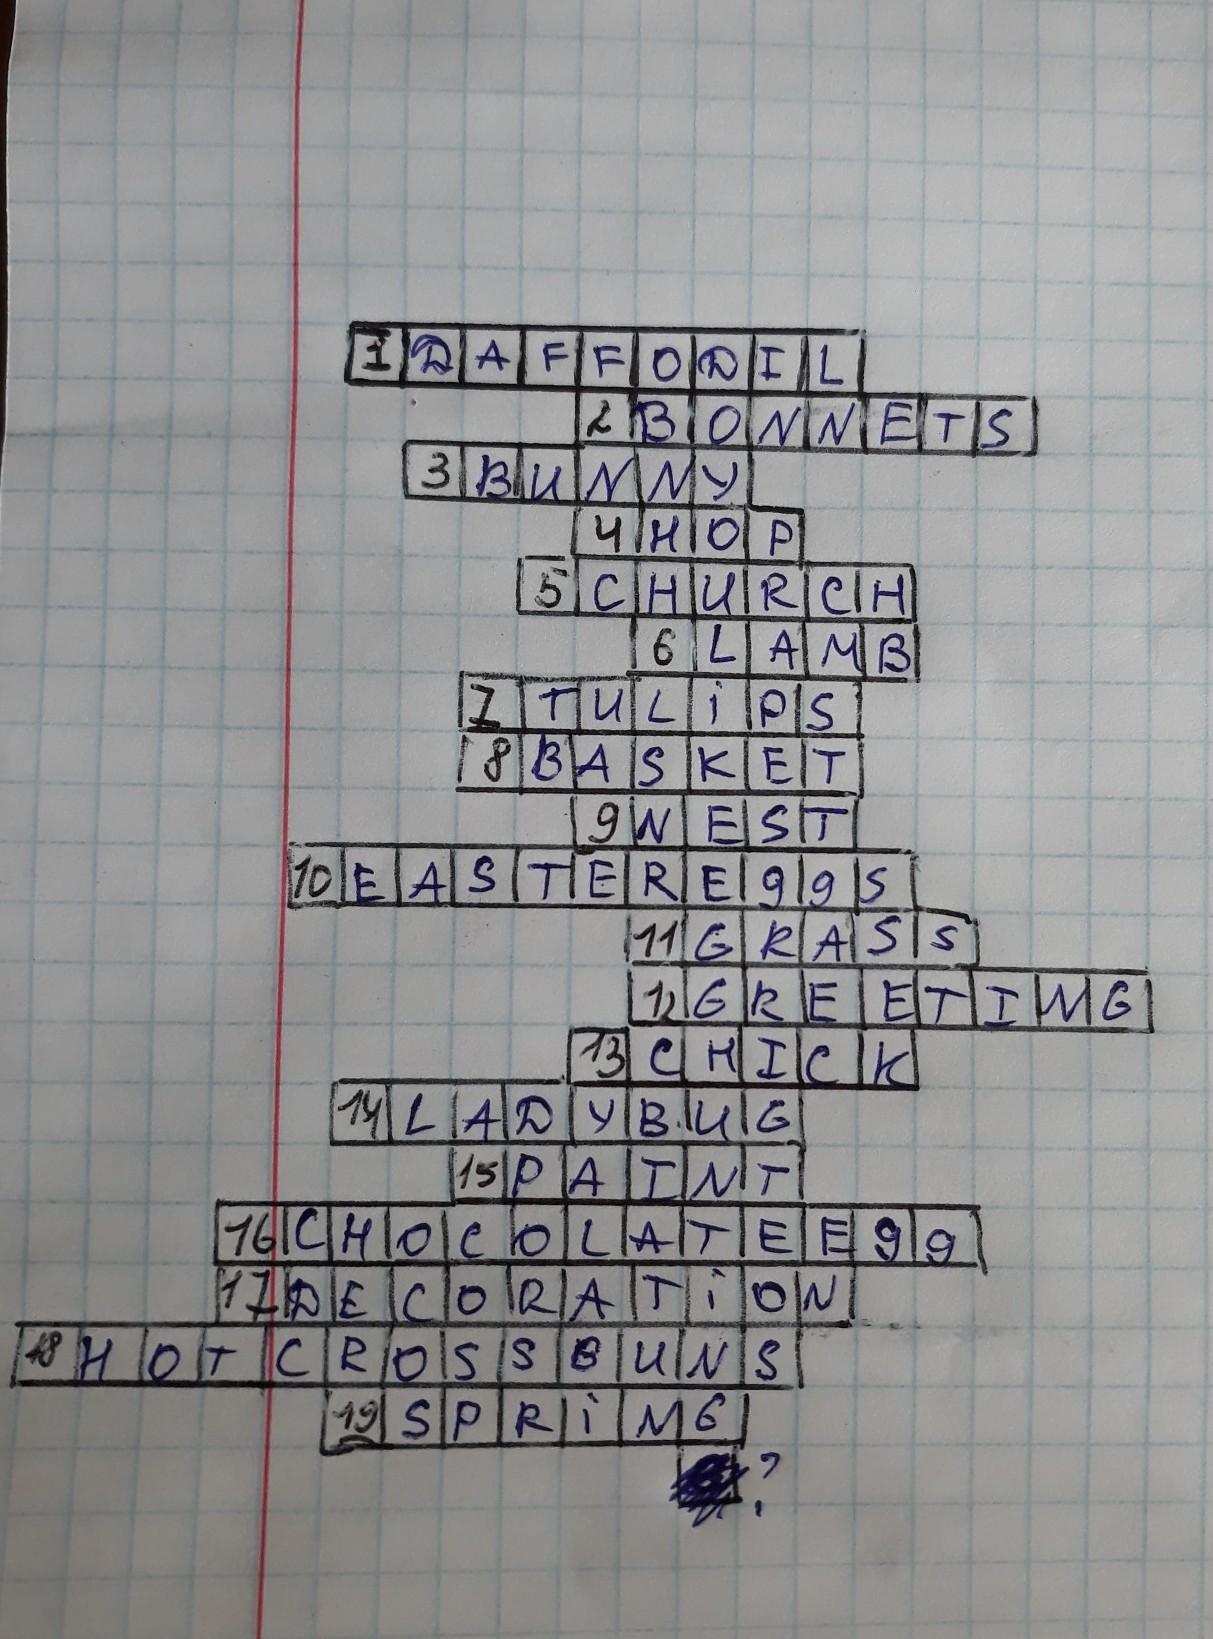 1 DAFFODIL
2 BONNETS
3 BUNNY
4 HOP
5 CHURCH
6 LAMB
7 TULiPS
8 BASKET
9 NEST
10 EASTEREggS
11 GRASS
12 GREETING
13 CHICK
14 LADYBUG
15 PAINT
16 CHOCOLATEEgg
17 DECORATiON
18 HOTCROSSBUNS
19 SPRiNG
?